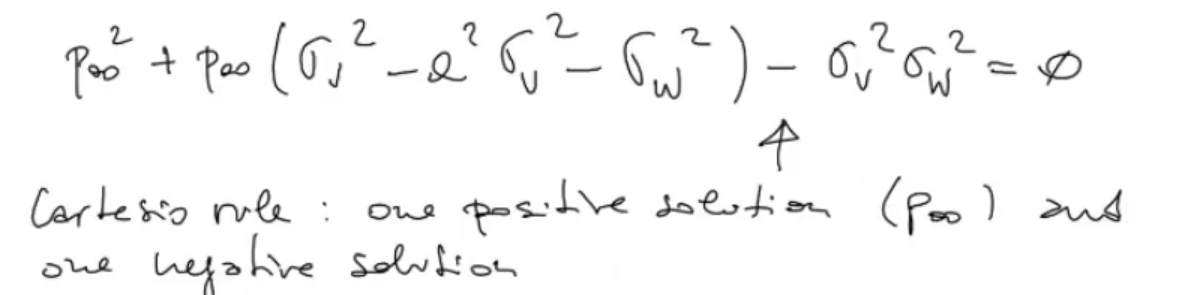 p∞² + p∞ (σᵥ² - a² σᵥ² - σ_W²) - σᵥ² σ_W² = ∅
↑
Cartesio rule : one positive solution (p∞) and
one negative solution